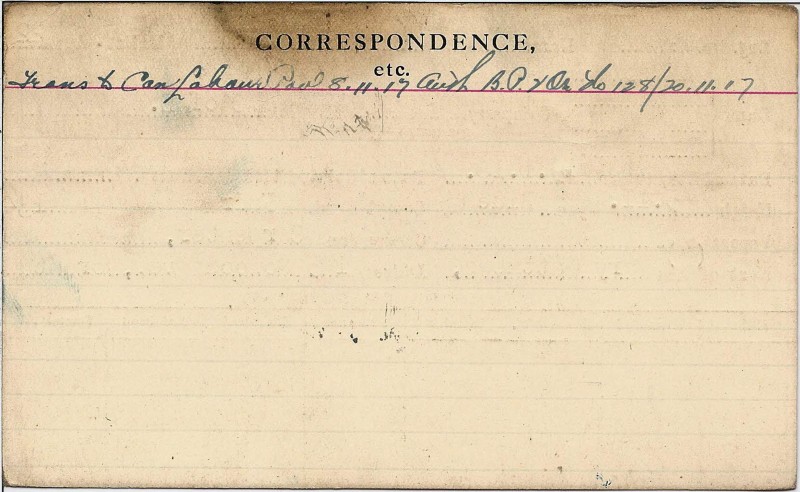 CORRESPONDENCE,
etc.
Trans to Can Labour Pool 8.11.17 Auth B.P. Or No 128/20.11.17